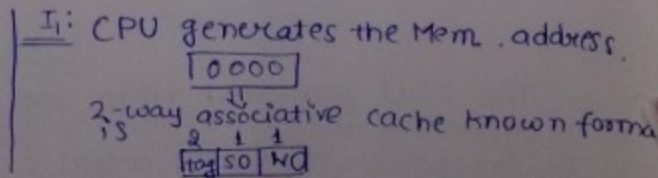 I₁: CPU generates the Mem. address.
0000
2-way associative cache known forma
is
2 1 1
tag SO WO